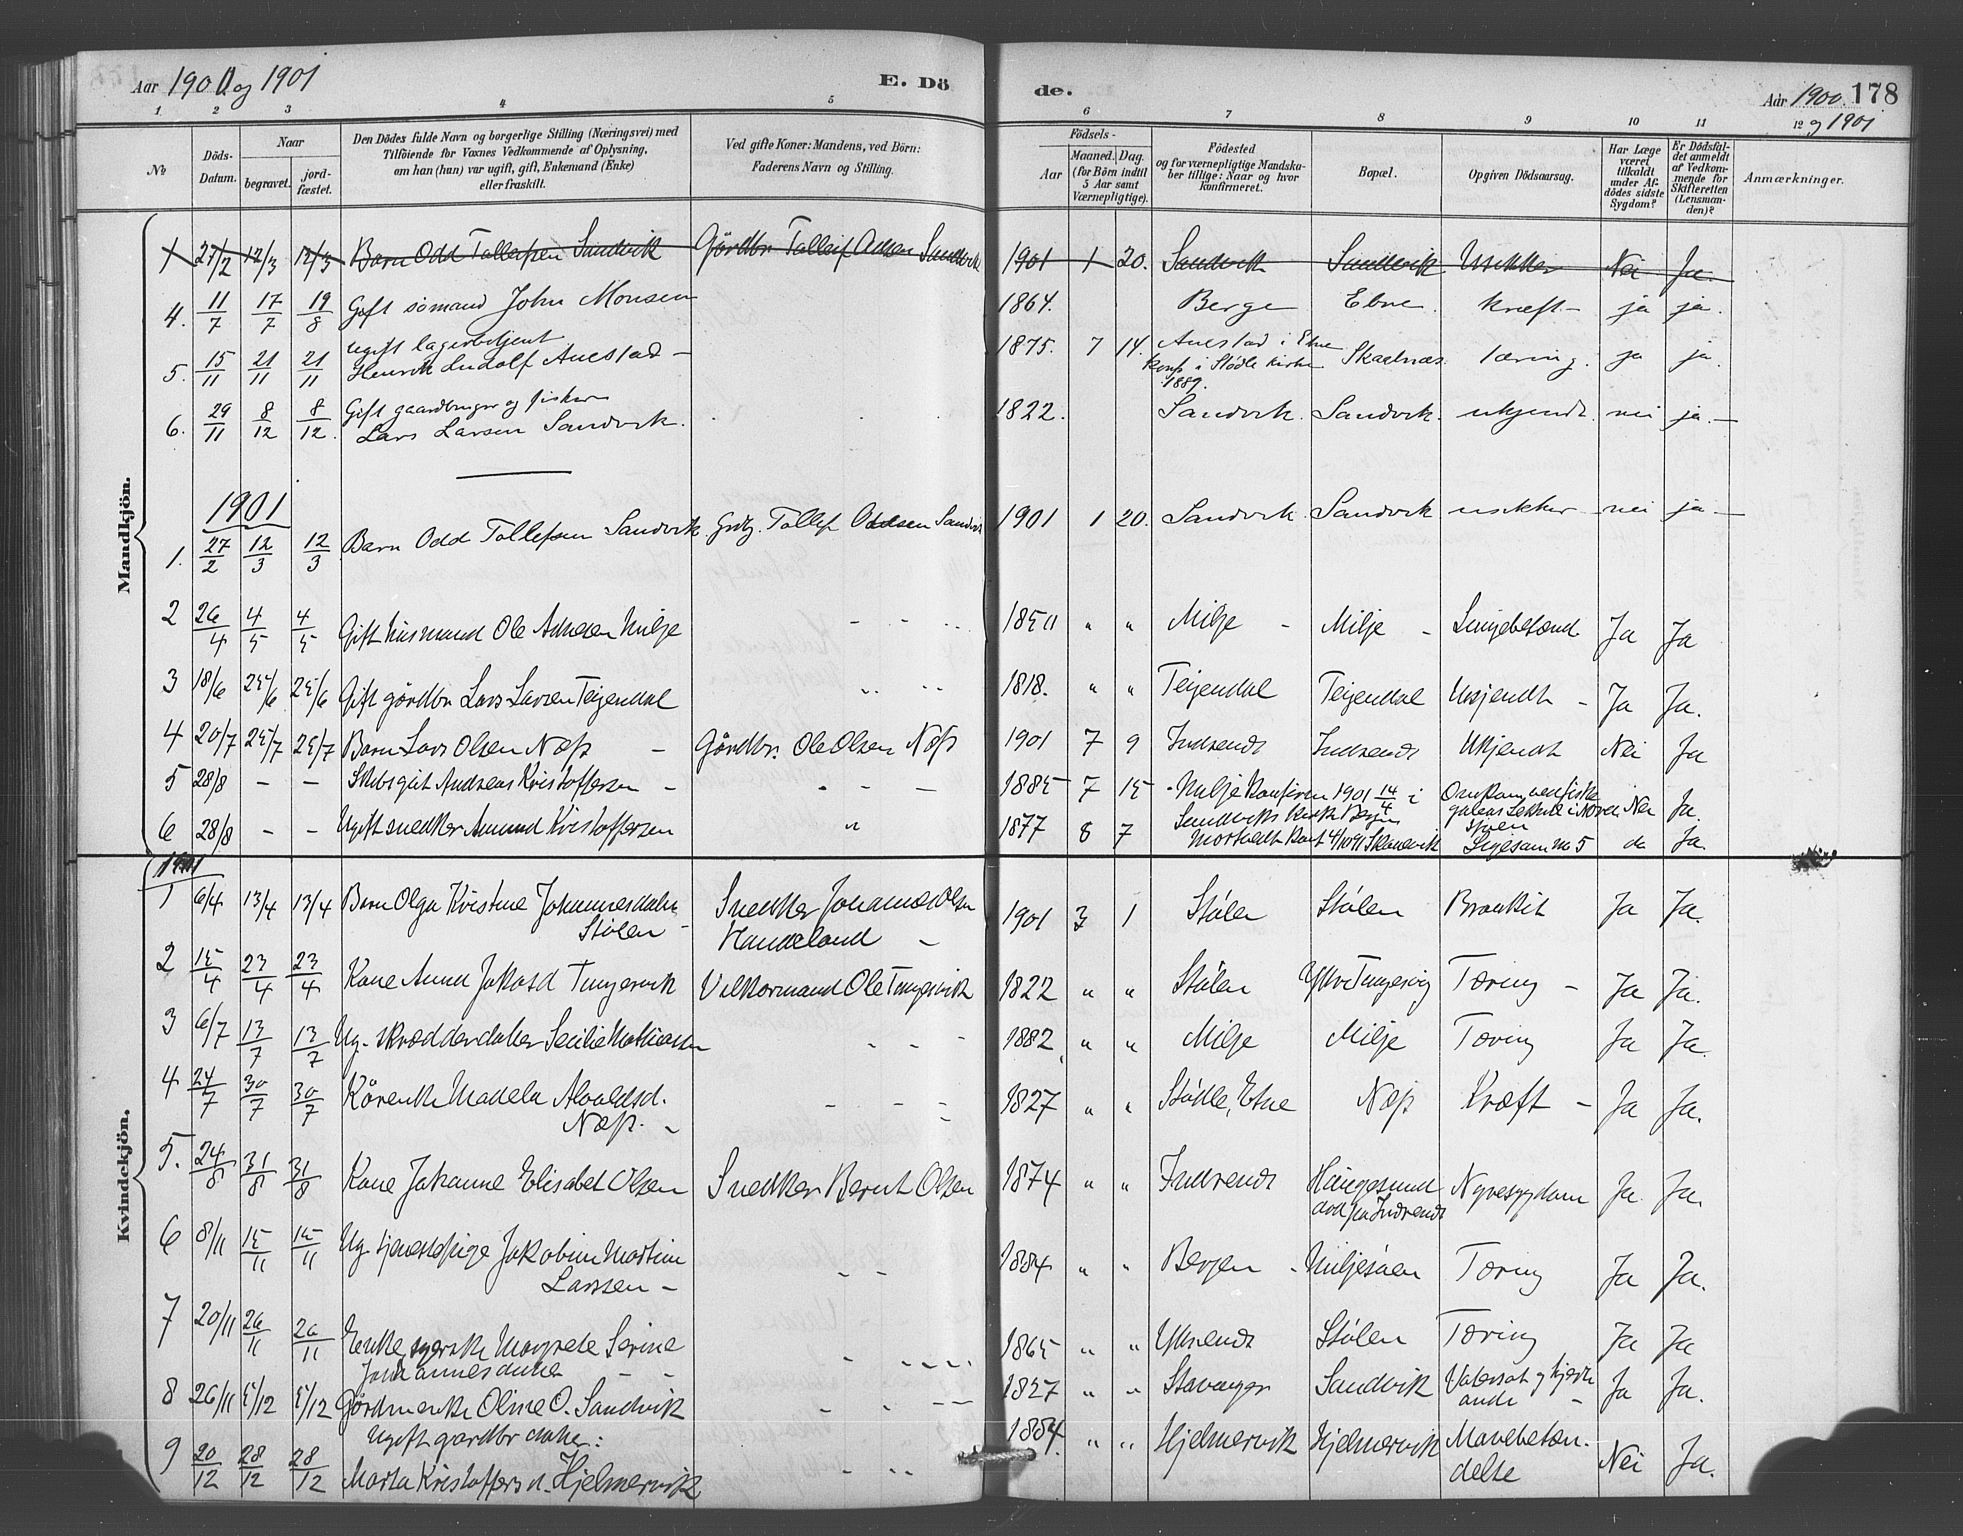 Aar 1900 og 1901 E. Dö
de. Aar 1900 178
og 1901
1 2 3 4 5 6 7 8 9 10 11 12
No
Döds-Datum.
Naar
begravet. jordfæstet.
Den Dödes fulde Navn og borgerlige Stilling (Næringsvei) med
Tilföiende for Voxnes Vedkommende af Oplysning,
om han (hun) var ugift, gift, Enkemand (Enke)
eller fraskilt.
Ved gifte Koner: Mandens, ved Börn:
Faderens Navn og Stilling.
Födsels-
Aar Maaned. Dag.
(for Börn indtil
5 Aar samt
Værnepligtige).
Födested
og for værnepligtige Mandskaber tillige: Naar og hvor
konfirmeret.
Bopæl.
Opgiven Dödsaarsag.
Har Læge
været
tilkaldt
under Afdödes sidste
Sygdom?
Er Dödsfaldet anmeldt
af Vedkommende for
Skifteretten
(Lensmanden)?
Anmærkninger.
Mandkjön.
1 27/2 12/3 12/3 Barn Odd Tollefsen Sandvik Gårdbr. Tolleif Sandvik 1901 1 20. Sandvik Sandvik Usikker Nei Ja.
4. 11/7 17/7 19/8 Gift sömand John Monsen 1864. Berge Etne. kræft – ja ja.
5. 15/11 21/11 21/11 ugift lagerbetjent
Henrik Ludolf Auestad – 1875. 7 14. Auestad i Etne
konf. i Stödle kirke
1889. Skaalnæs tæring. ja ja.
6. 29/11 8/12 8/12. Gift gaardbruger og fisker
Lars Larsen Sandvik. 1822. Sandvik. Sandvik. ukjendt. nei ja. –
1901
1. 27/2 12/3 12/3 Barn Odd Tollefsen Sandvik. Grdbr. Tollef Sandvik 1901 1 20. Sandvik Sandvik usikker – nei ja –
2 26/4 4/5 4/5 Gift husmand Ole Milje 1850 " " Milje – Milje – Lungebetænd. Ja Ja
3 18/6 25/6 25/6 Gift gårdbr Lars Larsen Teigendal 1818. " " Teigendal Teigendal Ukjendt – Ja Ja.
4 20/7 25/7 25/7 Barn Lars Olsen Næss – Gårdbr. Ole Olsen Næss 1901 7 9 Indrende Indrende Ukjendt Nei Ja
5 28/8 – – Skibsgut Andreas Kristoffersen – " – – 1885 7 15 Milje Konfirm 1901 14/4 i
Sandviks Kirke Bergen Omkom ved Nei Ja.
6 28/8 – – Ugift snedker Amund Kristoffersen " 1877 8 7 Skaanevik Ligesom no 5 do Ja.
Kvindekjön.
1901
1 6/4 13/4 13/4 Barn Olga Kristine Johannesdatter
Stölen – Snedker Johannes Olsen
Handeland – 1901 3 1 Stölen Stölen Bronkit Ja Ja.
2 15/4 23/4 23/4 Kone Anna Jakobsd Tungesvik Velkormand Ole Tungesvik 1822 " " Stölen Ytre Tungesvig Tæring – Ja Ja.
3 6/7 13/7 13/7 Ug. skrædderdatter Secilie Mathiassen – – – 1882 " " Milje Milje Tæring Ja Ja.
4 24/7 30/7 30/7 Kårenke Madela Alvaldsd.
Næss. – – – – 1827 " " Stödle, Etne Næss Kræft – Ja Ja.
5. 24/8 31/8 31/8 Kone Johanne Elisabet Olsen Snedker Bernt Olsen 1874 " " Indrende Haugesund
död på Indrende Nyresygdom Ja Ja.
6 8/11 15/11 15/11 Ug tjenestepige Jakobine Martine
Larsen – – – 1884 " " Bergen – Miljesöen Tæring Ja Ja.
7 20/11 26/11 26/11 Enke syerske Margrete Serine
Johannesdatter – – 1865 " " Utrende Stölen Tæring Ja Ja
8 26/11 5/12 5/12 Gårdmenke Oline O. Sandvik – – – 1827 " " Stavanger Sandvik Vatersot og hjerte
onde – Ja Ja.
9 20/12 28/12 28/12 Ugift gardbr datter:
Marta Kristoffers d. Hjelmervik – – – 1884. " " Hjelmervik Hjelmervik Mavebetændelse Nei Ja.